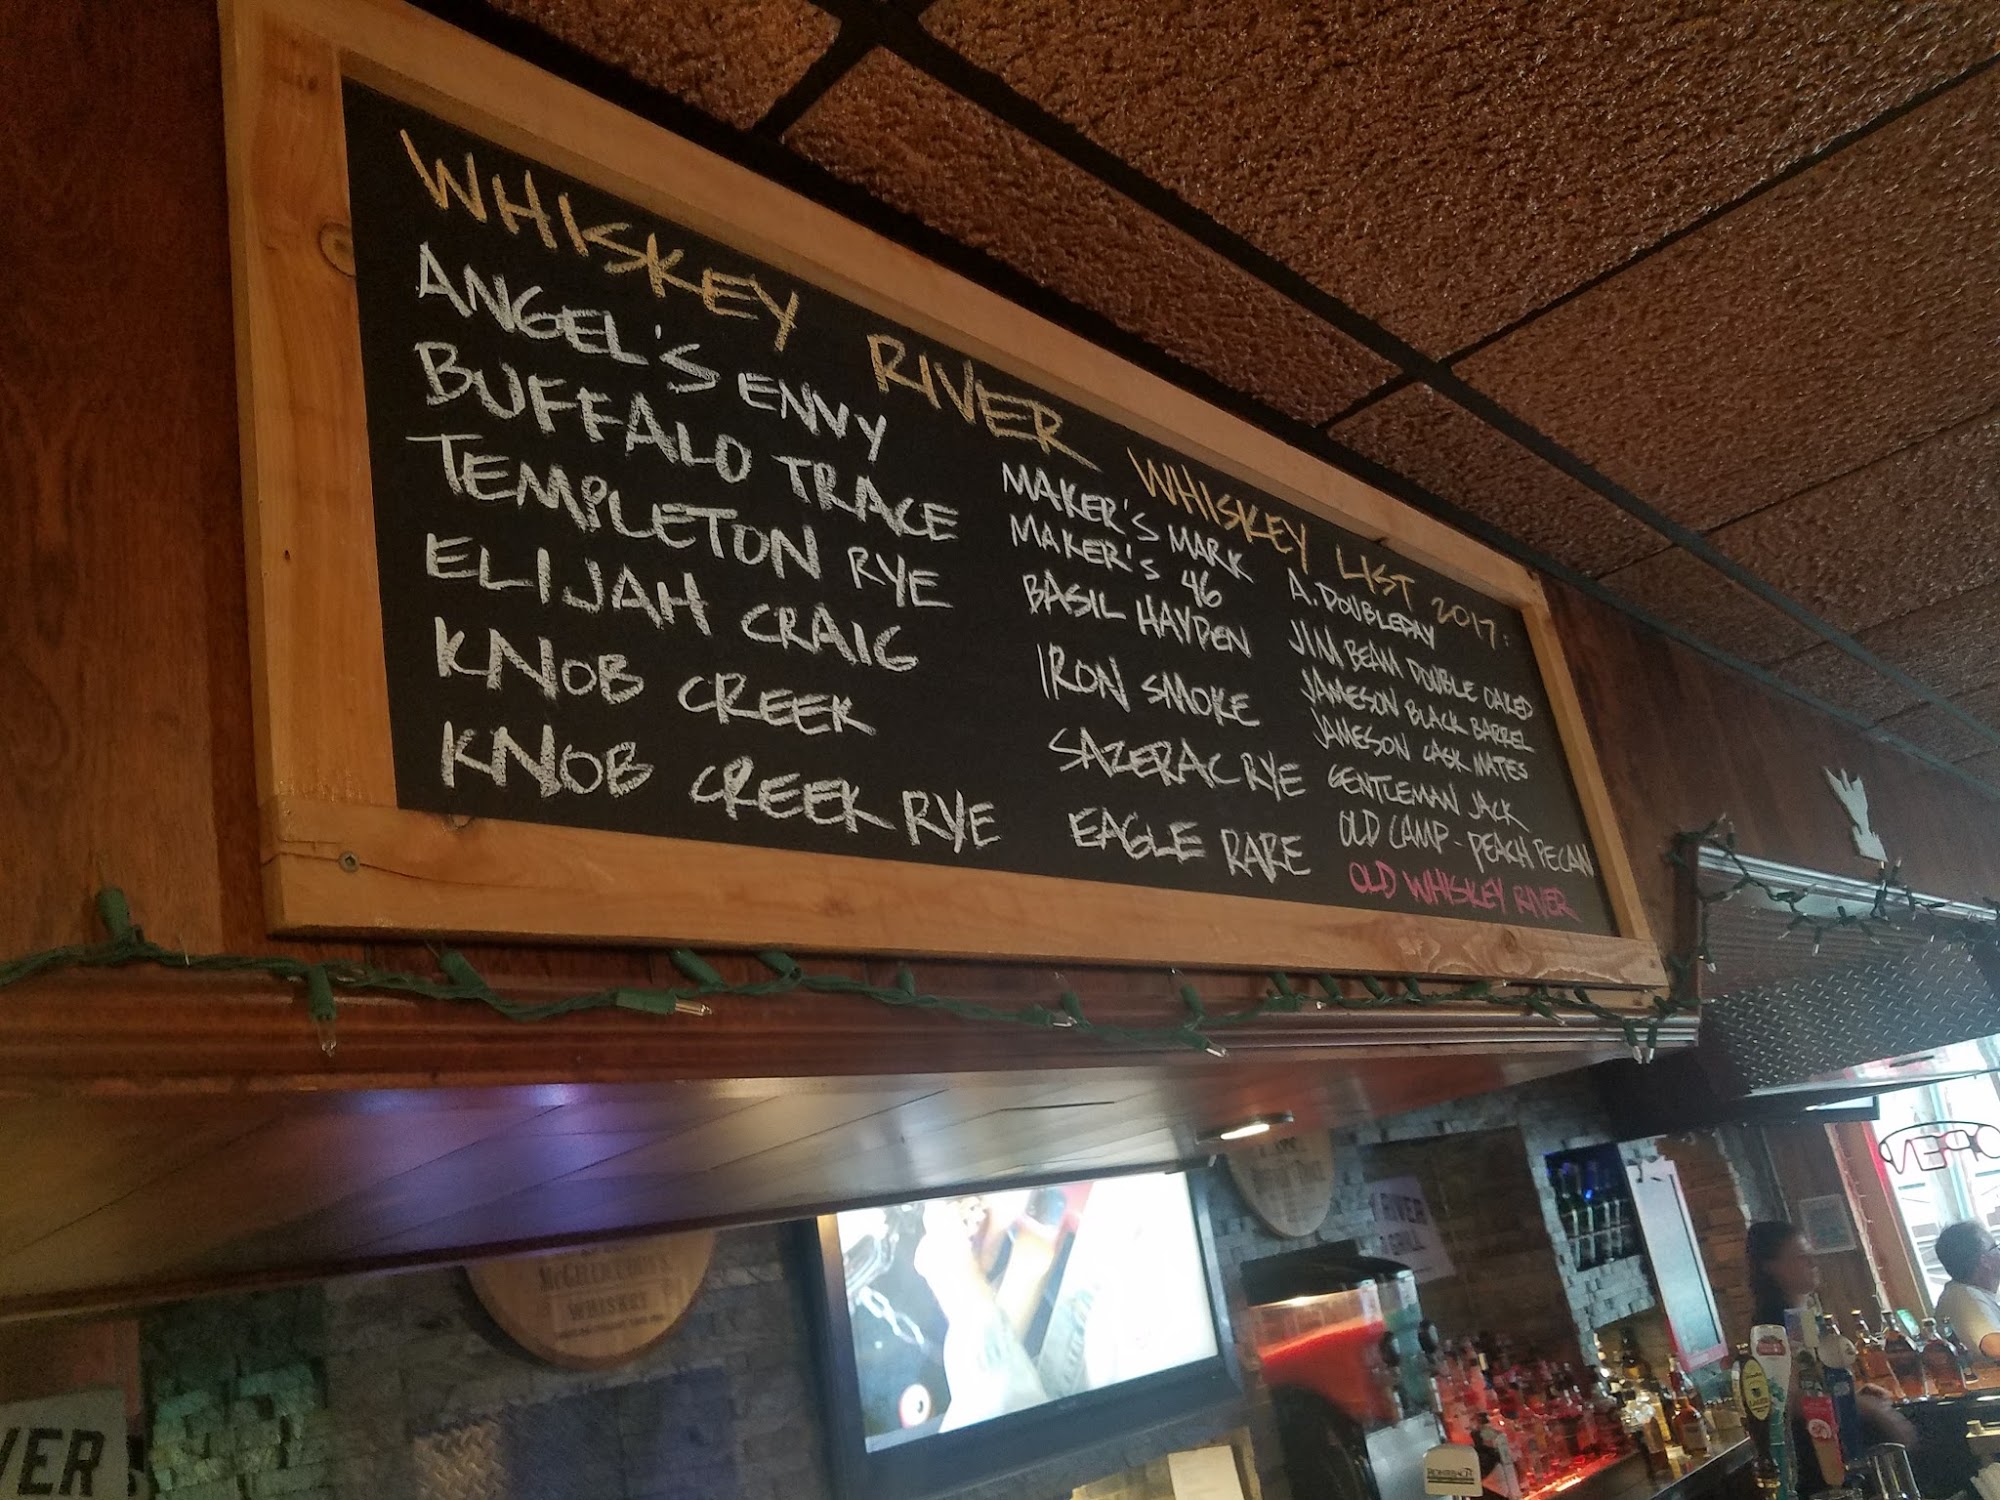 WHISKEY RIVER WHISKEY LIST 2017:
ANGEL'S ENVY
BUFFALO TRACE
TEMPLETON RYE
ELIJAH CRAIG
KNOB CREEK
KNOB CREEK RYE
MAKER'S MARK
MAKER'S 46
BASIL HAYDEN
IRON SMOKE
SAZERAC RYE
EAGLE RARE
A. DOUBLEDAY
JIM BEAM DOUBLE OAKED
JAMESON BLACK BARREL
JAMESON CASK MATES
GENTLEMAN JACK
OLD CAMP - PEACH PECAN
OLD WHISKEY RIVER
OPEN
RIVER
GRILL
WHISKEY
VER
ROHRBACH